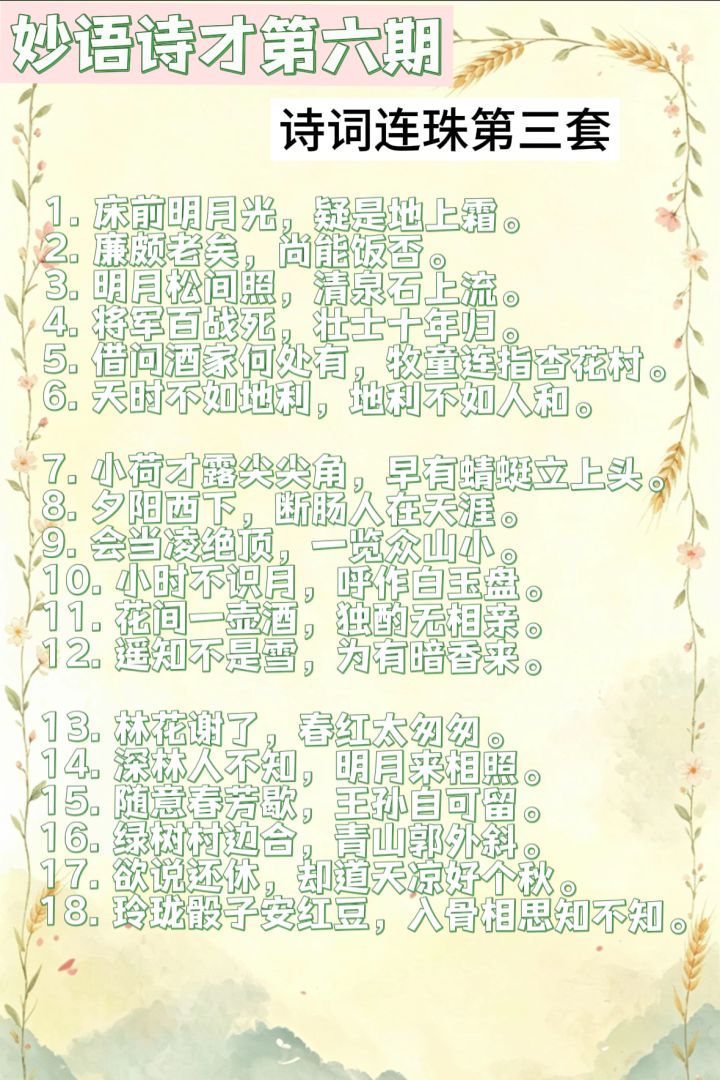 妙语诗才第六期
诗词连珠第三套
1. 床前明月光，疑是地上霜。
2. 廉颇老矣，尚能饭否。
3. 明月松间照，清泉石上流。
4. 将军百战死，壮士十年归。
5. 借问酒家何处有，牧童连指杏花村。
6. 天时不如地利，地利不如人和。
7. 小荷才露尖尖角，早有蜻蜓立上头。
8. 夕阳西下，断肠人在天涯。
9. 会当凌绝顶，一览众山小。
10. 小时不识月，呼作白玉盘。
11. 花间一壶酒，独酌无相亲。
12. 遥知不是雪，为有暗香来。
13. 林花谢了，春红太匆匆。
14. 深林人不知，明月来相照。
15. 随意春芳歇，王孙自可留。
16. 绿树村边合，青山郭外斜。
17. 欲说还休，却道天凉好个秋。
18. 玲珑骰子安红豆，入骨相思知不知。